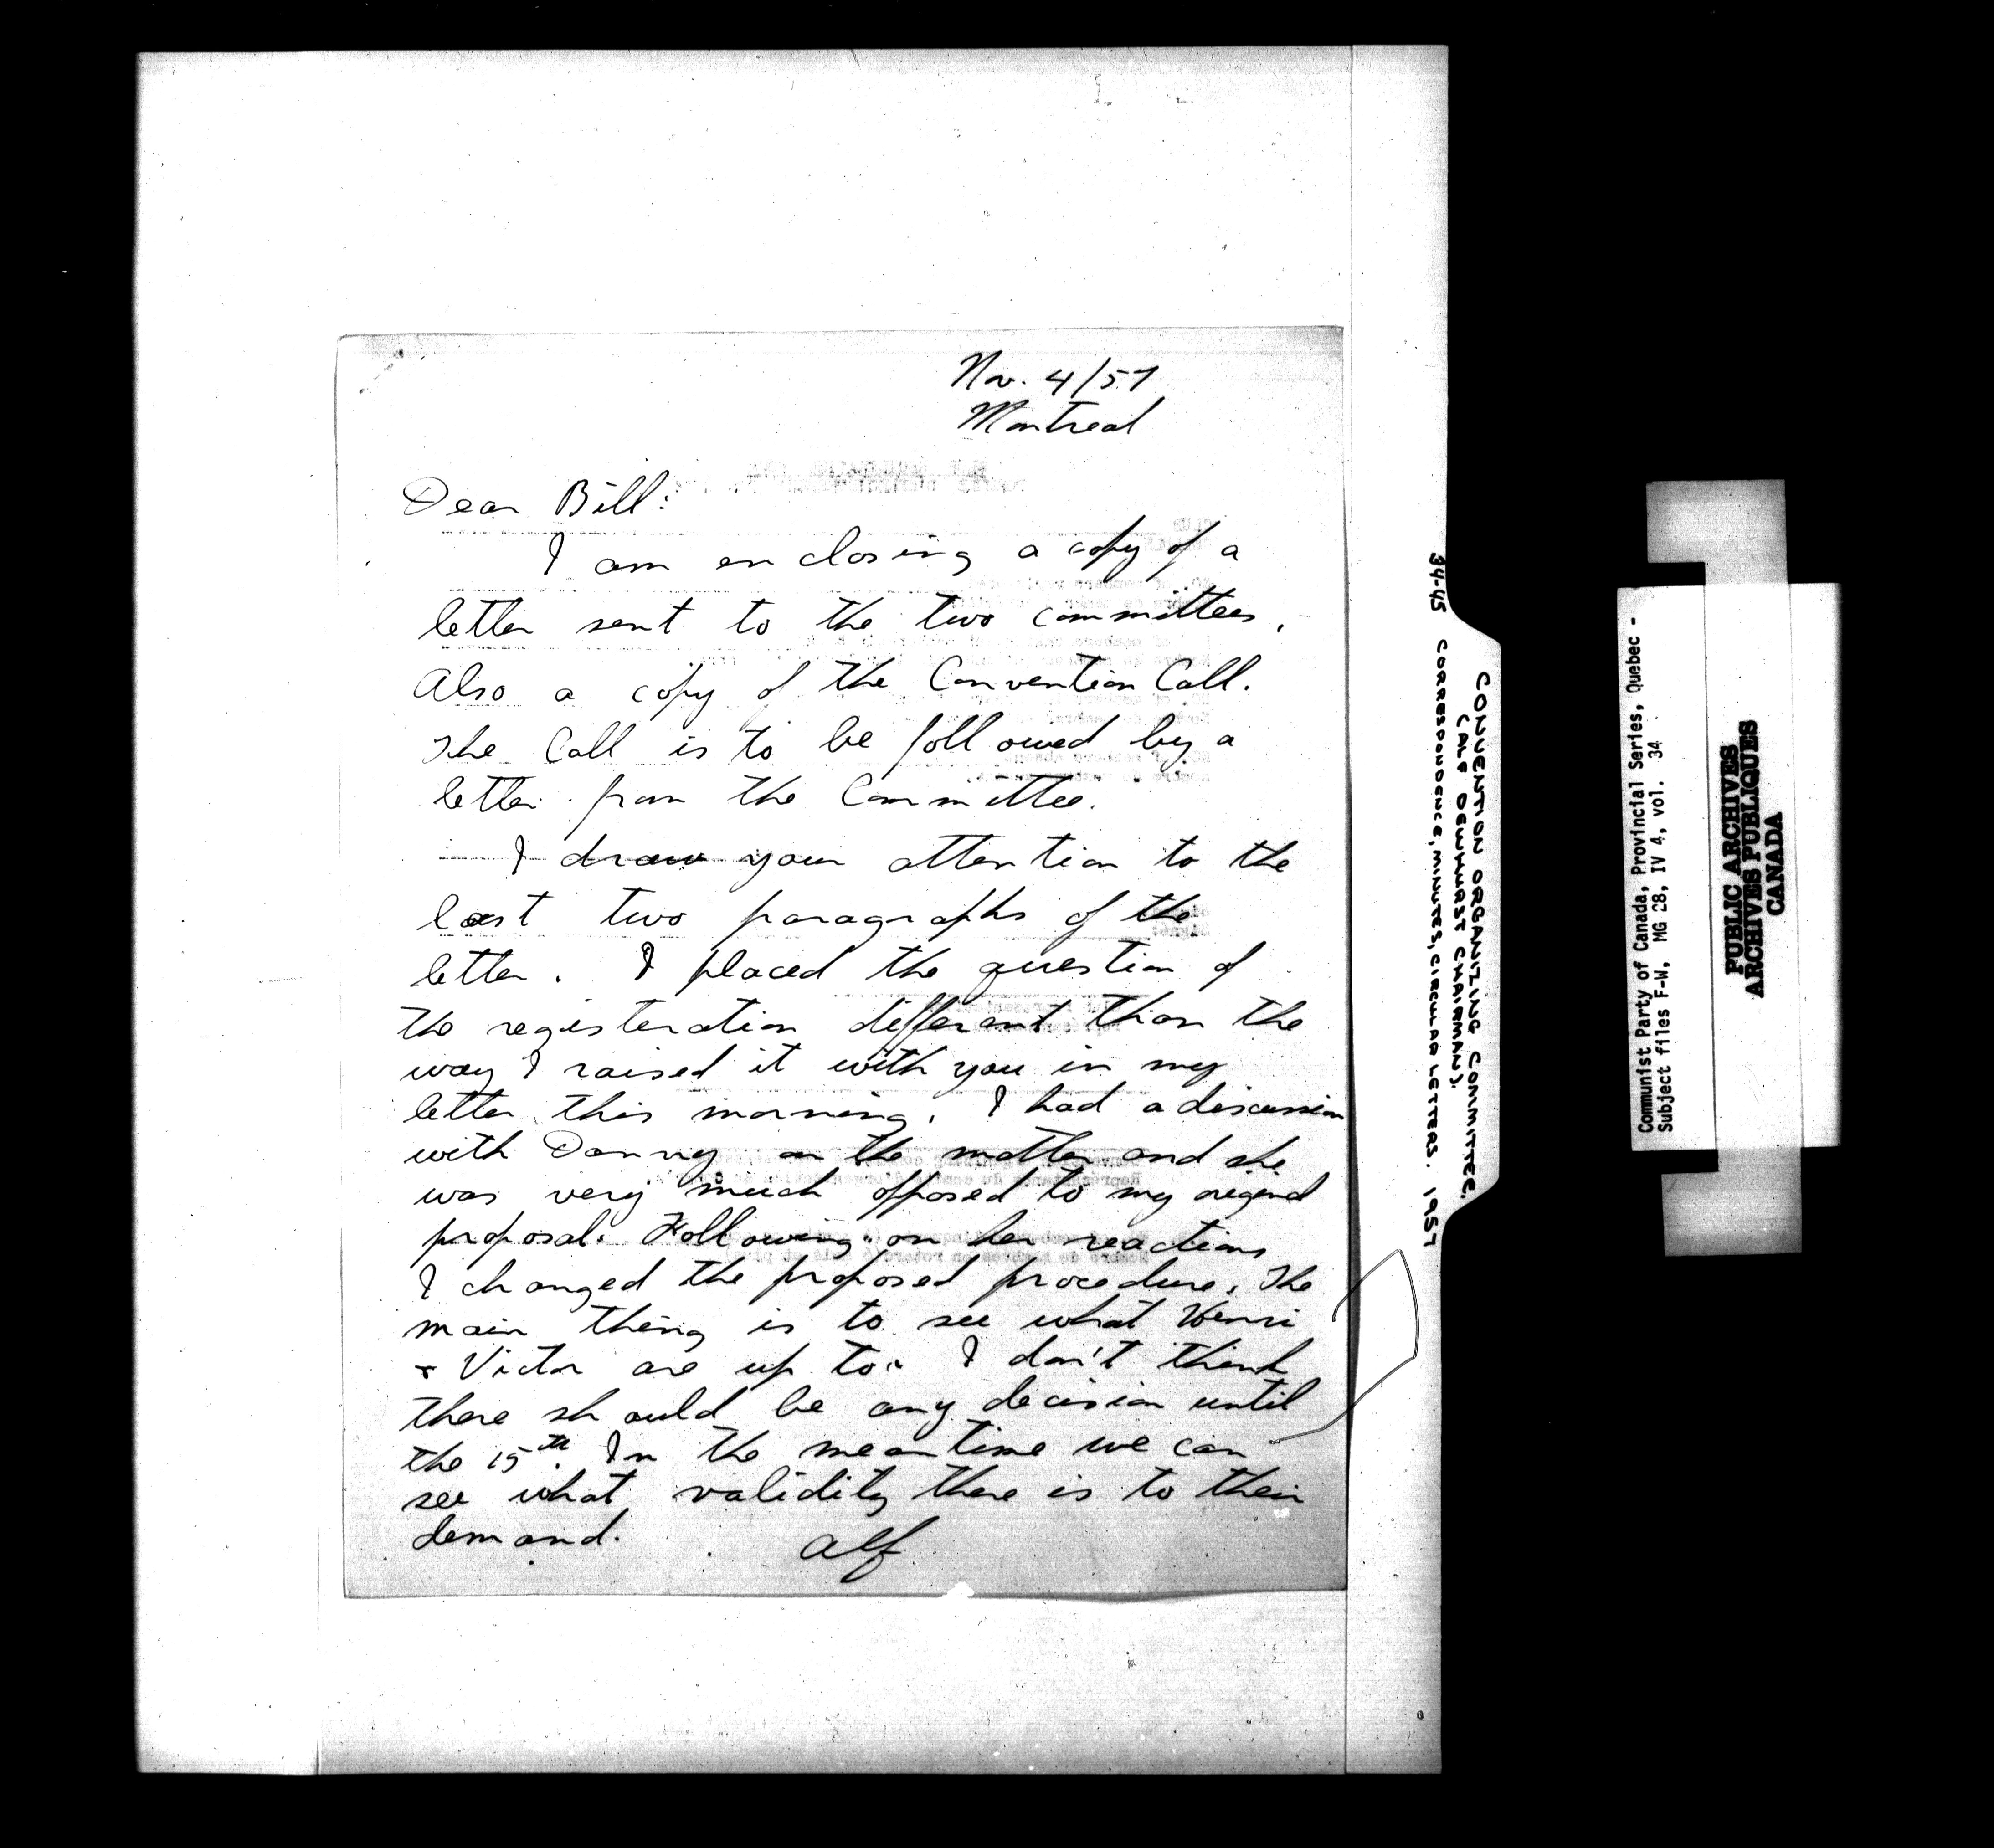 Nov. 4/57
Montreal
Dear Bill:
I am enclosing a copy of a
letter sent to the two committees.
Also a copy of the Convention Call.
The Call is to be followed by a
letter from the Committee.
I draw your attention to the
last two paragraphs of the
letter. I placed the question of
the registeration different than the
way I raised it with you in my
letter this morning. I had a discussion
with Danny on the matter and she
was very much opposed to my orginal
proposal. Following on her reactions
I changed the proposed procedure. The
main thing is to see what Henri
+ Victor are up to. I don't think
there should be any decision until
the 15th. In the meantime we can
see what validity there is to their
demand. Alf
34-45 CONVENTION ORGANIZING COMMITTEE.
(CALE DEWHURST CHAIRMAN).
CORRESPONDENCE, MINUTES, CIRCULAR LETTERS. 1957
Communist Party of Canada, Provincial Series, Quebec -
Subject files F-W, MG 28, IV 4, vol. 34
PUBLIC ARCHIVES
ARCHIVES PUBLIQUES
CANADA